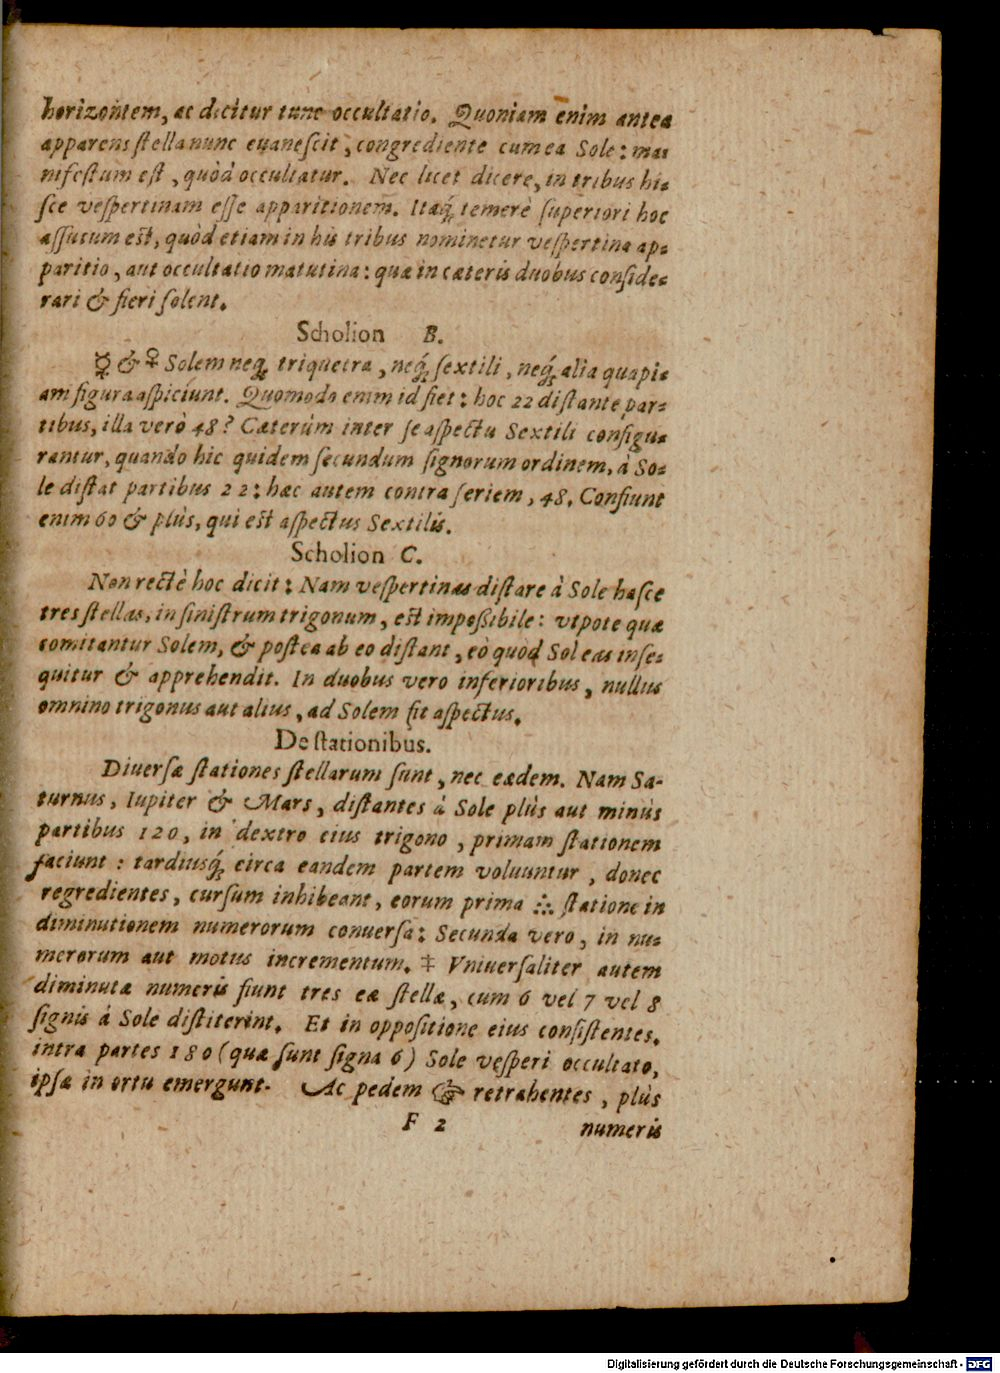 horizontem, ac dicitur tunc occultatio. Quoniam enim antea
apparens ſtella nunc euaneſcit, congrediente cum ea Sole: ma⸗
nifeſtum eſt, quòd occultatur. Nec licet dicere, in tribus hi⸗
ſce veſpertinam eſſe apparitionem. Itaq́; temerè ſuperiori hoc
aſſutum est, quòd etiam in his tribus nominetur veſpertina ap⸗
paritio, aut occultatio matutina: quæ in cæteris duobus conſide⸗
rari & fieri ſolent.
Scholion B.
☿ & ♀ Solem neq; triquetra, neq́; ſextili, neq́; alia quapi⸗
am figura aſpiciunt. Quomodo enim id fiet: hoc 22 diſtante par⸗
tibus, illa verò 48? Cæterùm inter ſe aſpectu Sextili configu⸗
rantur, quando hic quidem ſecundum ſignorum ordinem, à So⸗
le diſtat partibus 22: hæc autem contra ſeriem, 48. Confiunt
enim 60 & plùs, qui est aſpectus Sextilis.
Scholion C.
Non rectè hoc dicit: Nam veſpertinas diſtare à Sole haſce
tres ſtellas, in ſiniſtrum trigonum, est impoßibile: vtpote quæ
comitantur Solem, & poſtea ab eo diſtant, eò quòd Sol eas inſe⸗
quitur & apprehendit. In duobus vero inferioribus, nullus
omnino trigonus aut alius, ad Solem fit aſpectus.
De ſtationibus.
Diuerſæ ſtationes ſtellarum ſunt, nec eædem. Nam Sa-
turnus, Iupiter & Mars, diſtantes à Sole plùs aut minùs
partibus 120, in dextro eius trigono, primam ſtationem
faciunt: tardiusq́; circa eandem partem voluuntur, donec
regredientes, curſum inhibeant, eorum prima ∴ ſtatione in
diminutionem numerorum conuerſa: Secunda vero, in nu⸗
merorum aut motus incrementum. ‡ Vniuerſaliter autem
diminutæ numeris fiunt tres eæ ſtellæ, cum 6 vel 7 vel 8
ſignis à Sole diſtiterint. Et in oppoſitione eius conſiſtentes,
intra partes 180 (quæ ſunt ſigna 6) Sole veſperi occultato,
ipſæ in ortu emergunt. Ac pedem ☞ retrahentes, plùs
F 2 numeris
Digitalisierung gefördert durch die Deutsche Forschungsgemeinschaft - DFG